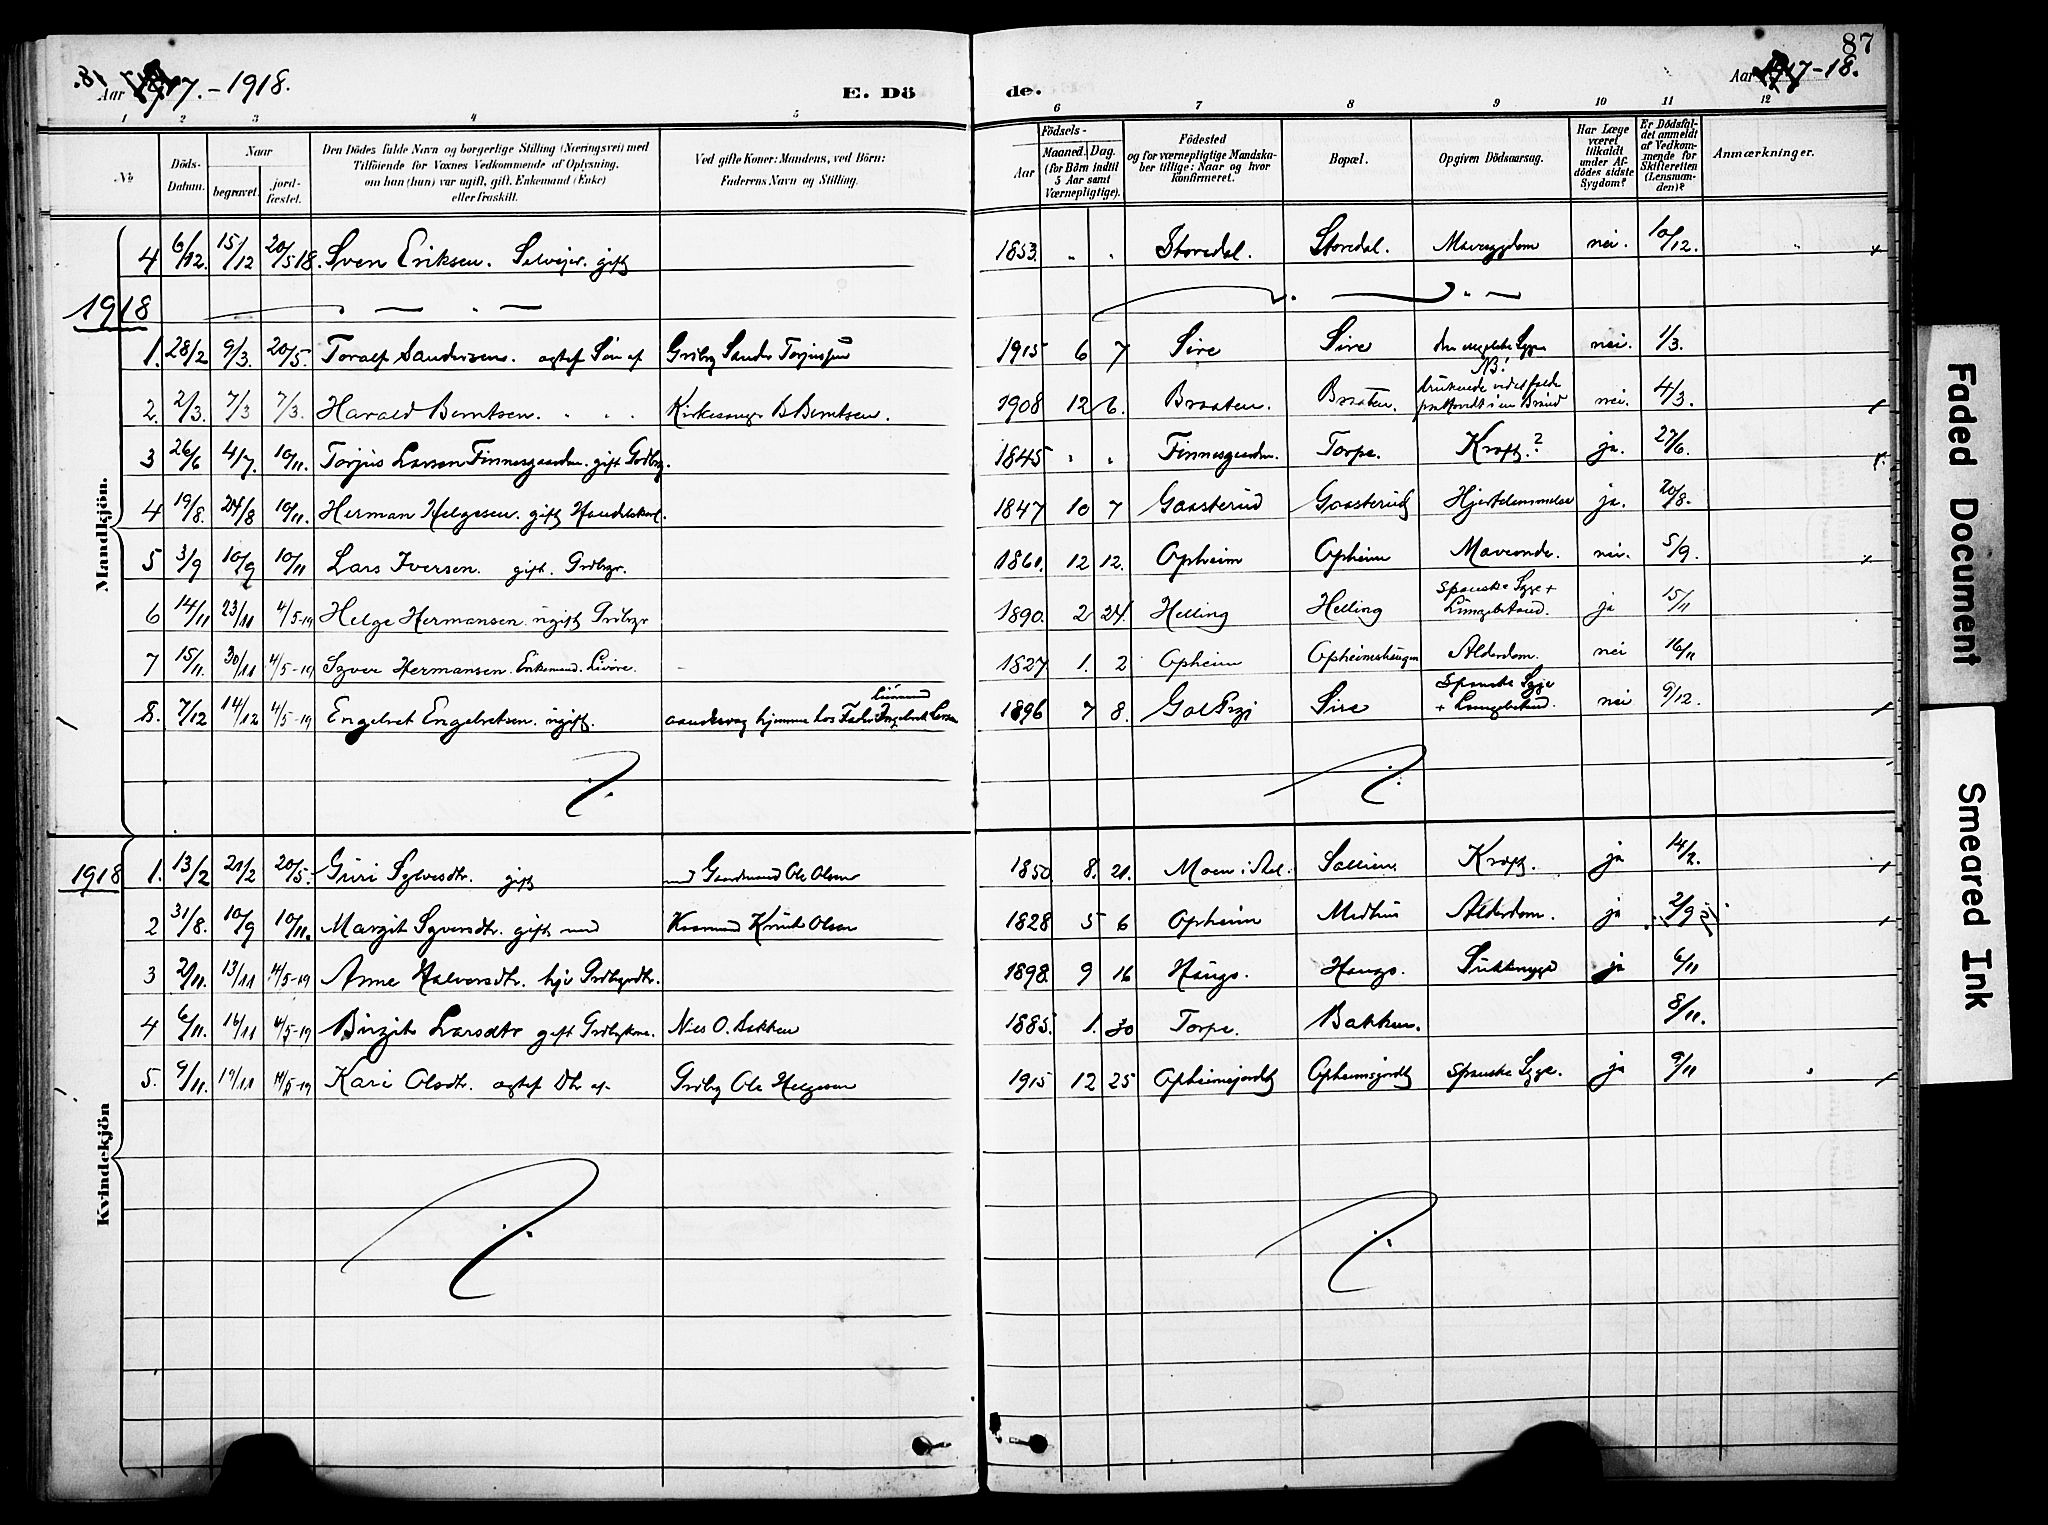 87
Aar 1917.-1918.
E. Dö
de.
Aar 1917-18.
1 2 3 4 5 6 7 8 9 10 11 12
No
Döds-Datum.
Naar
begravet.
jord-fæstet.
Den Dödes fulde Navn og borgerlige Stilling (Næringsvei) med
Tilföiende for Voxnes Vedkommende af Oplysning,
om han (hun) var ugift, gift, Enkemand (Enke)
eller fraskilt.
Ved gifte Koner: Mandens, ved Börn:
Faderens Navn og Stilling.
Födsels-
Aar
Maaned. Dag.
(for Börn indtil
5 Aar samt
Værnepligtige).
Födested
og for værnepligtige Mandska-
ber tillige: Naar og hvor
konfirmeret.
Bopæl.
Opgiven Dödsaarsag.
Har Læge
været
tilkaldt
under Af-
dödes sidste
Sygdom?
Er Dödsfal-
det anmeldt
af Vedkom-
mende for
Skifteretten
(Lensman-
den)?
Anmærkninger.
Mandkjön.
4 6/12. 15/12 20/5 18. Sven Eriksen. Selveier. gift 1853. " . Storedal. Storedal. Mavesygdom nei. 10/12. "
1918
1. 28/2 9/3. 20/5. Toralf Sandersens. ægtef Søn af Grdbrg Sander Torjussen 1915 6 7 Sire Sire den engelske Syge nei. 1/3.
NB!
2. 2/3. 7/3 7/3. Harald Berntsen. " " Kirkesanger B Berntsen. 1908 12 6. Braaten. Braaten. druknede ved at falde i en Brønd nei. 4/3.
3 26/6 4/7. 10/11. Torjus Larsen Finnesgaarden. gift Grdbrg. 1845 " " Finnesgaarden. Torpe. Kræft? ja. 27/6.
4 19/8. 24/8 10/11. Herman Helgesen. gift 1847 10 7 Gaasterud Gaasterud Hjertelammelse ja. 20/8.
5 3/9 10/9 10/11 Lars Iversen. gift. Grdbrgr. 1861. 12 12. Opheim Opheim Maveonde. nei. 5/9.
6 14/11 23/11 4/5-19 Helge Hermansen. ugift Grdbrgr 1890. 2 24. Helling Helling Spanske Syge + Lungebetænd. ja 15/11
7 15/11. 30/11 4/5-19 Syver Hermansen. Enkemand. Livøre. - 1827 1. 2 Opheim Opheimshaugen Alderdom. nei 16/11
8. 7/12 14/12 4/5-19 Engebret Engebretsen. ugift. aandssvag hjemme hos Fader Ingebret Larsen 1896 7 8. Gol Prgj Sire Spanske Syge + Lungebetænd. nei 9/12.
1918
Kvindekjön
1. 13/2 21/2 20/5. Guri Sylvesdtr. gift med Gaardmand Ole Olsen 1850 8. 21. Moen i Aal. Sallien Kræft. ja 14/2.
2 31/8. 10/9 10/11. Margit Syversdtr. gift med Knut Olsen 1828 5 6 Opheim Medhus Alderdom. ja 2/9
3 2/11. 13/11 4/5-19 Anne Halvorsdtr. hjv Grdbrgrdtr. 1898. 9 16 Haugs. Haugs. Sukkersyge ja 6/11
4 6/11. 16/11 4/5-19 Birgit Larsdtr gift Grdbrgkone. Nils O. Bakken 1885. 1. 30 Torpe. Bakken. 8/11.
5. 9/11. 19/11 4/5-19 Kari Olsdtr. ægtef Dtr af Grdbrg Ole Helgesen 1915 12 25 Opheimsjordet Opheimsjordet Spanske Syge. ja 9/11
Faded Document
Smeared Ink